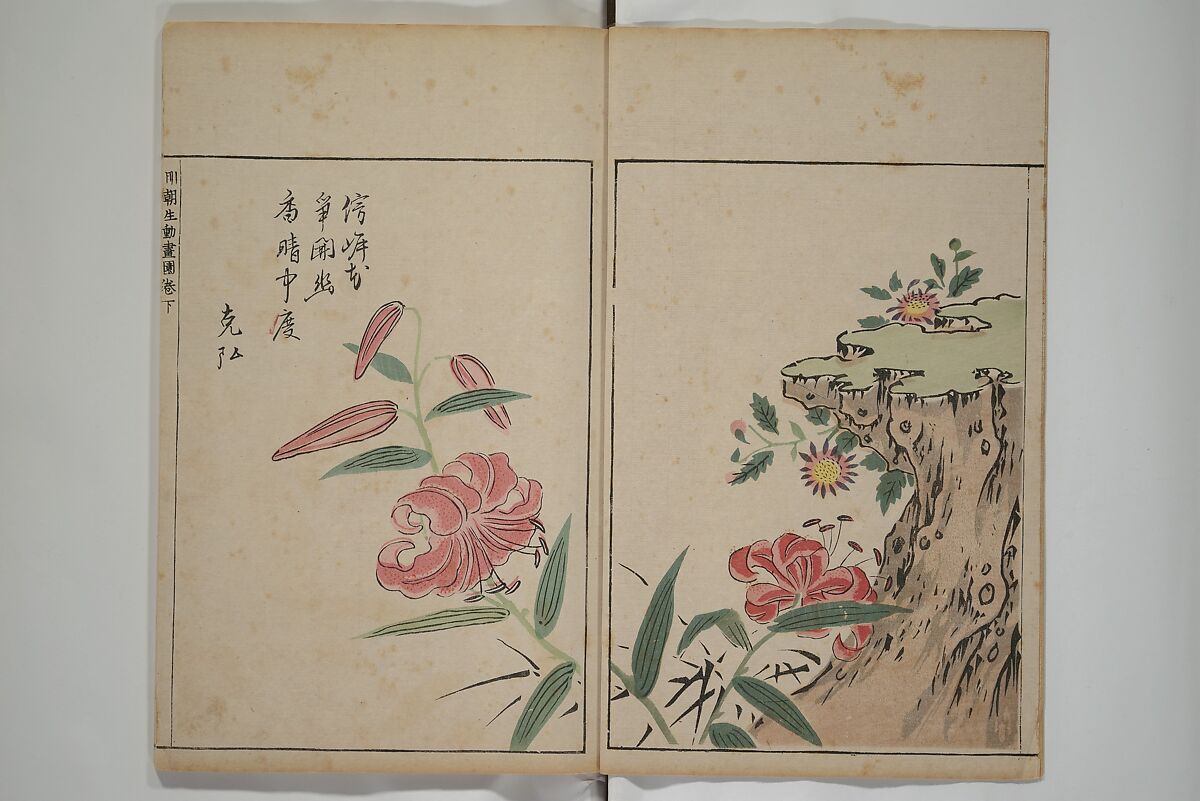 傍崕花
爭開幽
香晴中度
克弘
明朝生動畫園卷下